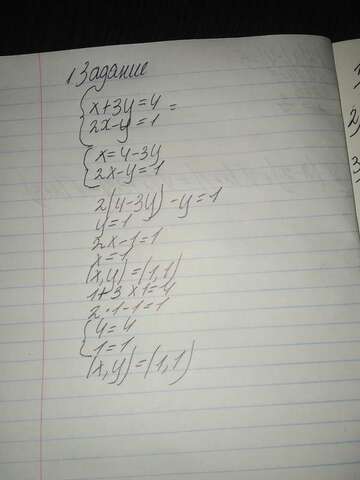 1 Задание
x+3y=4 =
2x-y=1
x=4-3y
2x-y=1
2(4-3y)-y=1
y=1
2x-1=1
x=1
(x,y)=(1,1)
1+3×1=4
2·1-1=1
4=4
1=1
(x,y)=(1,1)
3
2
3